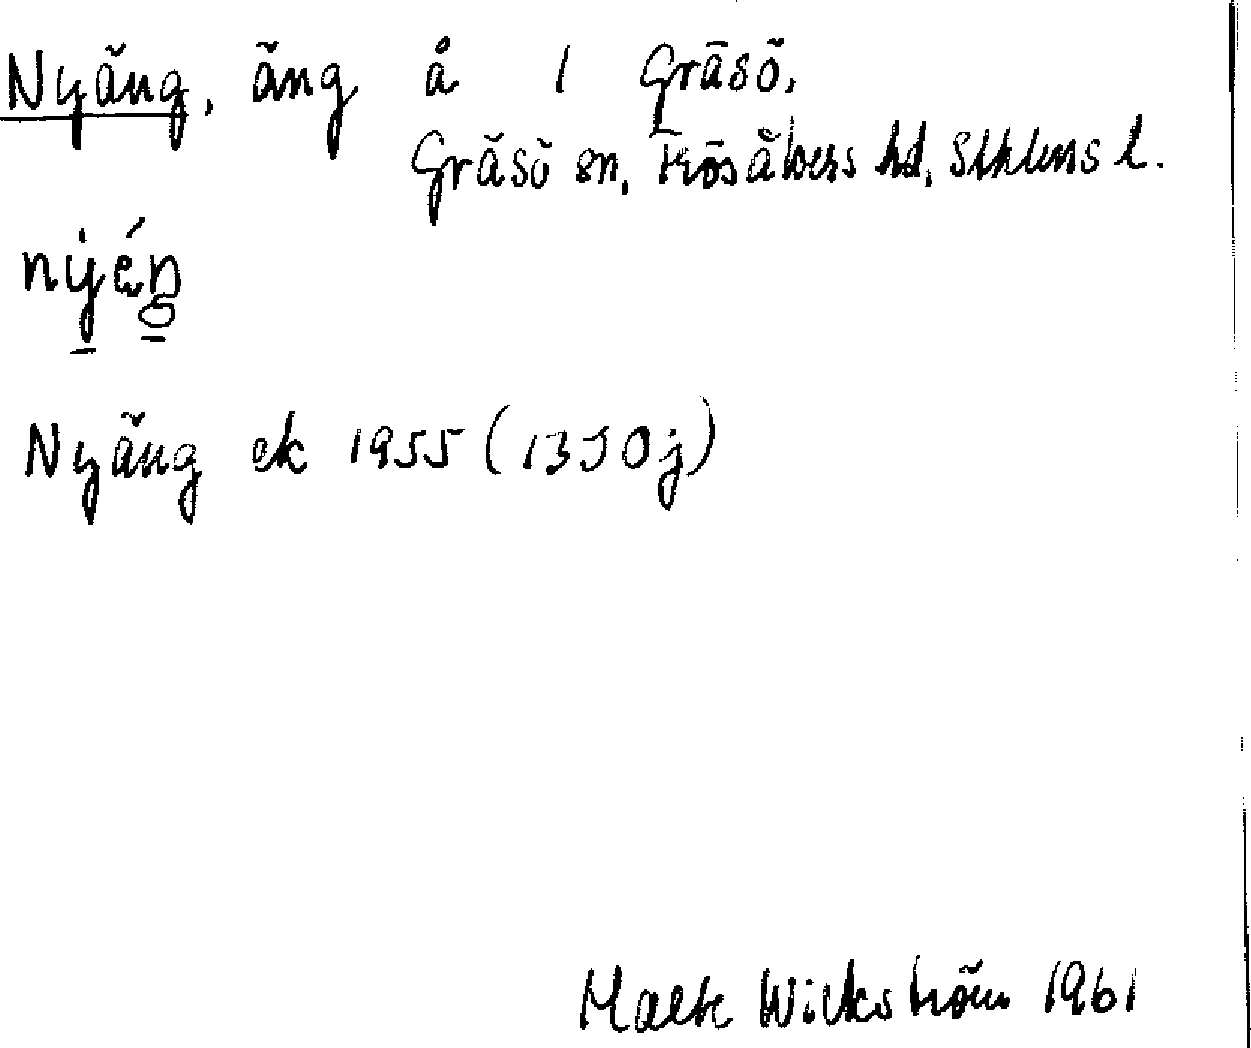 Nyäng, äng å 1 Gräsö,
Gräsö sn, Frösåkers hd, Sthlms l.
nyéŋ
Nyäng ek 1955 (13J0j)
Wickström 1961